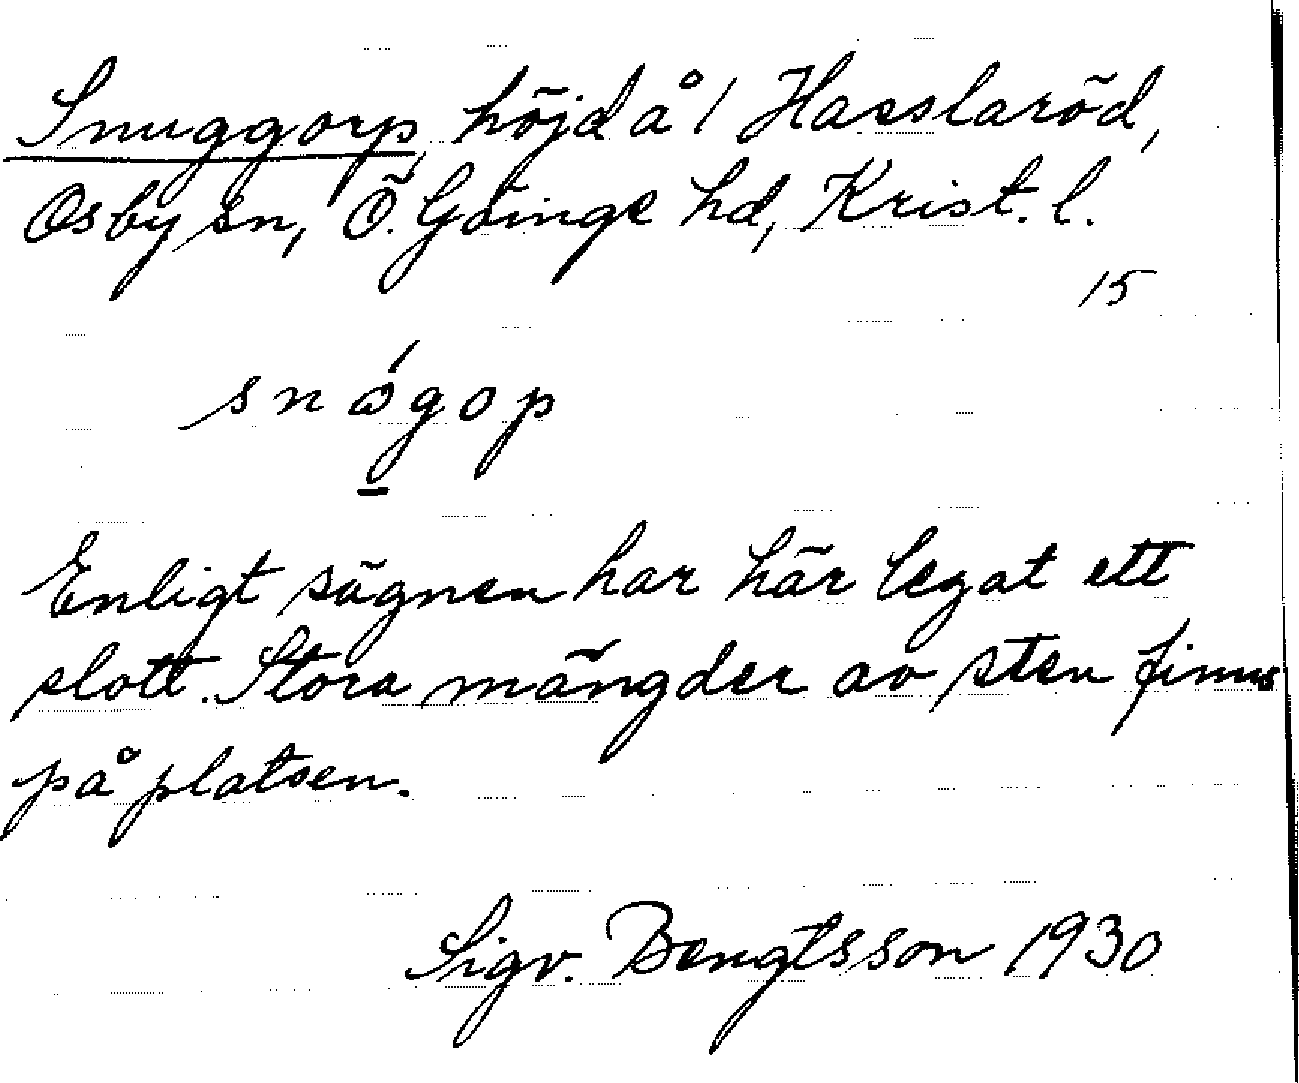 Snuggorp, höjd å 1 Hasslaröd,
Osby sn, Ö. Göinge hd, Krist. l.
15
snǫ́gop
Enligt sägnen har här legat ett
slott. Stora mängder av sten finns
på platsen.
Sigv. Bengtsson 1930